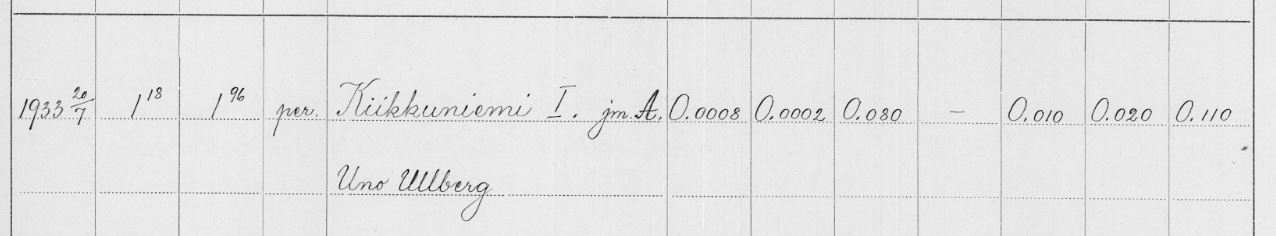 1933 20/7 1 18 1 96 per. Kiikkuniemi I. jm. A. 0.0008 0.0002 0.080 — 0.010 0.020 0.110
Uno Ullberg